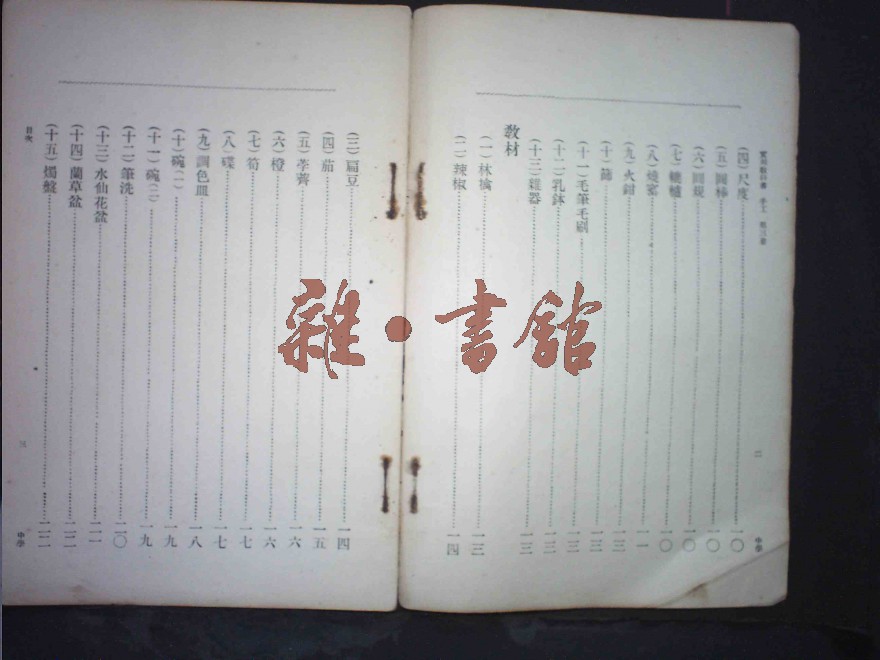 (四)尺度……一〇
(五)圓棒……一〇
(六)圓規……一〇
(七)轆轤……一〇
(八)燒窰……一一
(九)火鉗……一二
(十)篩……一二
(十一)毛筆毛刷……一二
(十二)乳鉢……一二
(十三)雜器……一三
教材
(一)林檎……一三
(二)辣椒……一四
二
中學
(三)扁豆……一四
(四)茄……一五
(五)荸薺……一六
(六)橙……一六
(七)筍……一七
(八)碟……一七
(九)調色皿……一八
(十)碗(一)……一九
(十一)碗(二)……一九
(十二)筆洗……二〇
(十三)水仙花盆……二一
(十四)蘭草盆……二二
(十五)燭盤……二二
目次
三
中學
雜•書館